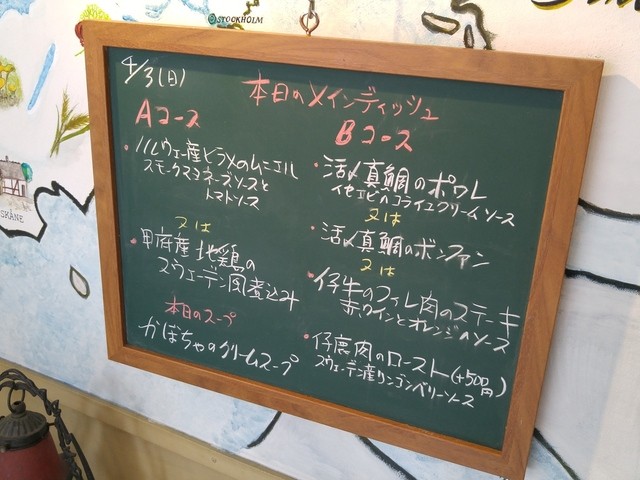 STOCKHOLM
SKÅNE
4/3(日)
本日のメインディッシュ
Aコース
・ノルウェー産ヒラメのムニエル
スモークスマヨネーズソースと
トマトソース
又は
・甲府産地鶏の
スウェーデン風煮込み
本日のスープ
かぼちゃのクリームスープ
Bコース
・活〆真鯛のポワレ
イセエビのコライユクリームソース
又は
・活〆真鯛のボンファン
又は
・仔牛のフィレ肉のステーキ
赤ワインとオレンジのソース
・仔鹿肉のロースト(+500円)
スウェーデン産リンゴンベリーソース